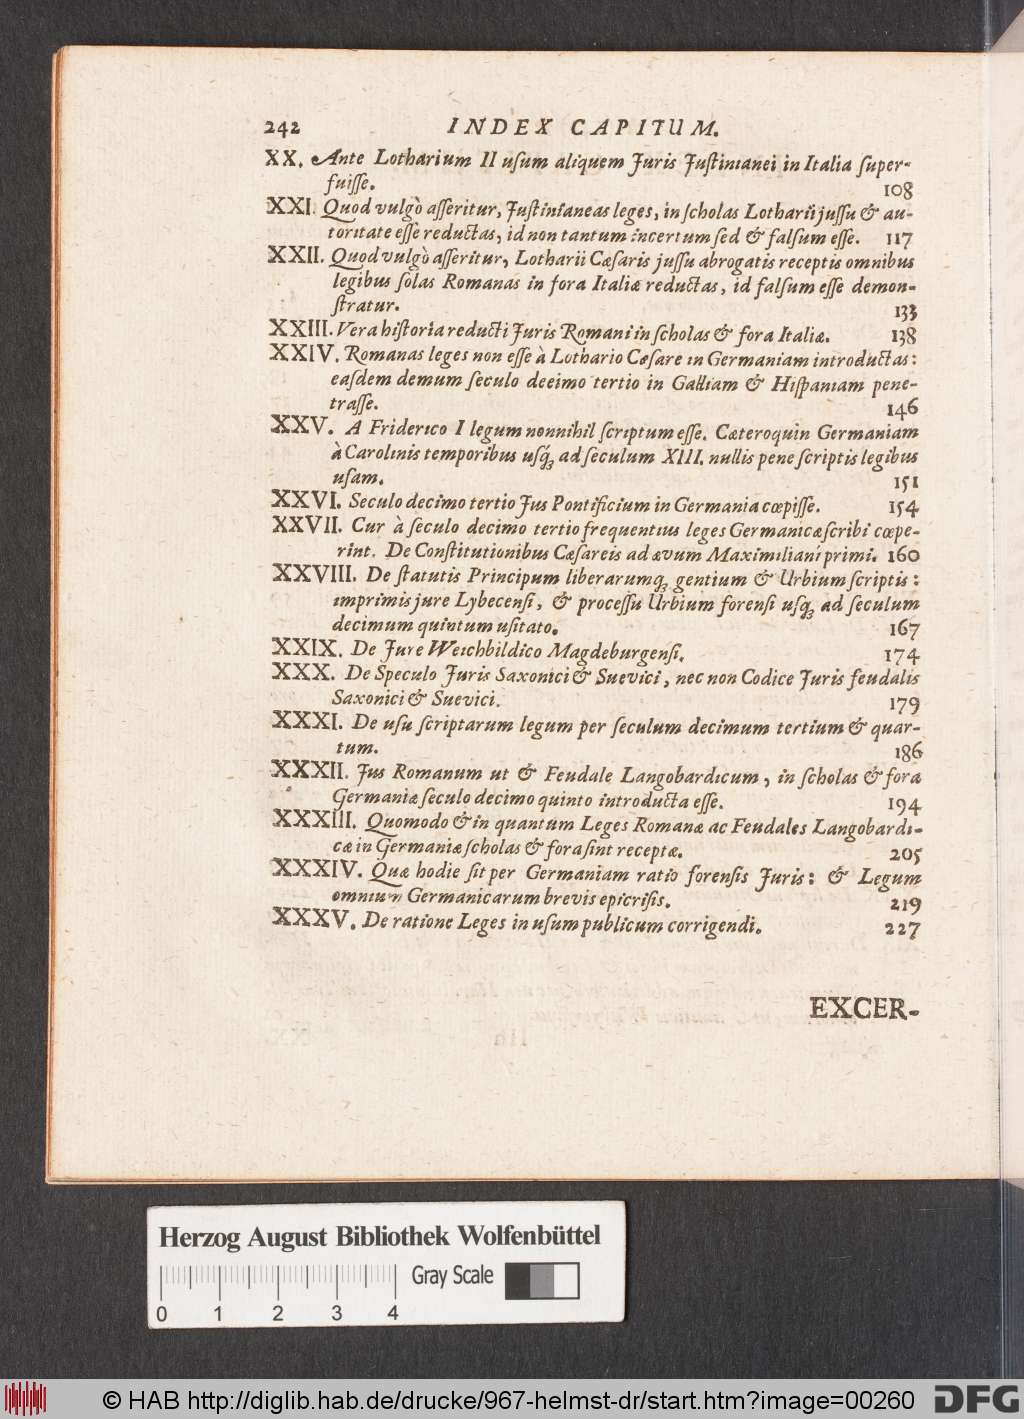 242 INDEX CAPITUM.
XX. Ante Lotharium II uſum aliquem Juris Juſtinianei in Italia ſuper-
fuiſſe. 108
XXI. Quod vulgò aſſeritur, Juſtinianeas leges, in ſcholas Lotharii juſſu & au-
toritate eſſe reductas, id non tantum incertum ſed & falſum eſſe. 117
XXII. Quod vulgò aſſeritur, Lotharii Cæſaris juſſu abrogatis receptis omnibus
legibus ſolas Romanas in fora Italiæ reductas, id falſum eſſe demon-
ſtratur. 133
XXIII. Vera hiſtoria reducti Juris Romani in ſcholas & fora Italiæ. 138
XXIV. Romanas leges non eſſe à Lothario Cæſare in Germaniam introductas:
eaſdem demum ſeculo decimo tertio in Galliam & Hiſpaniam pene-
traſſe. 146
XXV. A Friderico I legum nonnihil ſcriptum eſſe. Cæteroquin Germaniam
à Carolinis temporibus uſq́ꝫ ad ſeculum XIII. nullis pene ſcriptis legibus
uſam. 151
XXVI. Seculo decimo tertio Jus Pontificium in Germania cœpiſſe. 154
XXVII. Cur à ſeculo decimo tertio frequentius leges Germanicæ ſcribi cœpe-
rint. De Conſtitutionibus Cæſareis ad ævum Maximiliani primi. 160
XXVIII. De ſtatutis Principum liberarumqꝫ gentium & Urbium ſcriptis:
imprimis jure Lybecenſi, & proceſſu Urbium forenſi uſqꝫ ad ſeculum
decimum quintum uſitato. 167
XXIX. De Jure Weichbildico Magdeburgenſi. 174
XXX. De Speculo Juris Saxonici & Suevici, nec non Codice Juris feudalis
Saxonici & Suevici. 179
XXXI. De uſu ſcriptarum legum per ſeculum decimum tertium & quar-
tum. 186
XXXII. Jus Romanum ut & Feudale Langobardicum, in ſcholas & fora
Germaniæ ſeculo decimo quinto introducta eſſe. 194
XXXIII. Quomodo & in quantum Leges Romanæ ac Feudales Langobardi-
cæ in Germaniæ ſcholas & fora ſint receptæ. 205
XXXIV. Quæ hodie ſit per Germaniam ratio forenſis Juris: & Legum
omnium Germanicarum brevis epicriſis. 219
XXXV. De ratione Leges in uſum publicum corrigendi. 227
EXCER-
Herzog August Bibliothek Wolfenbüttel
Gray Scale
0 1 2 3 4
© HAB http://diglib.hab.de/drucke/967-helmst-dr/start.htm?image=00260 DFG